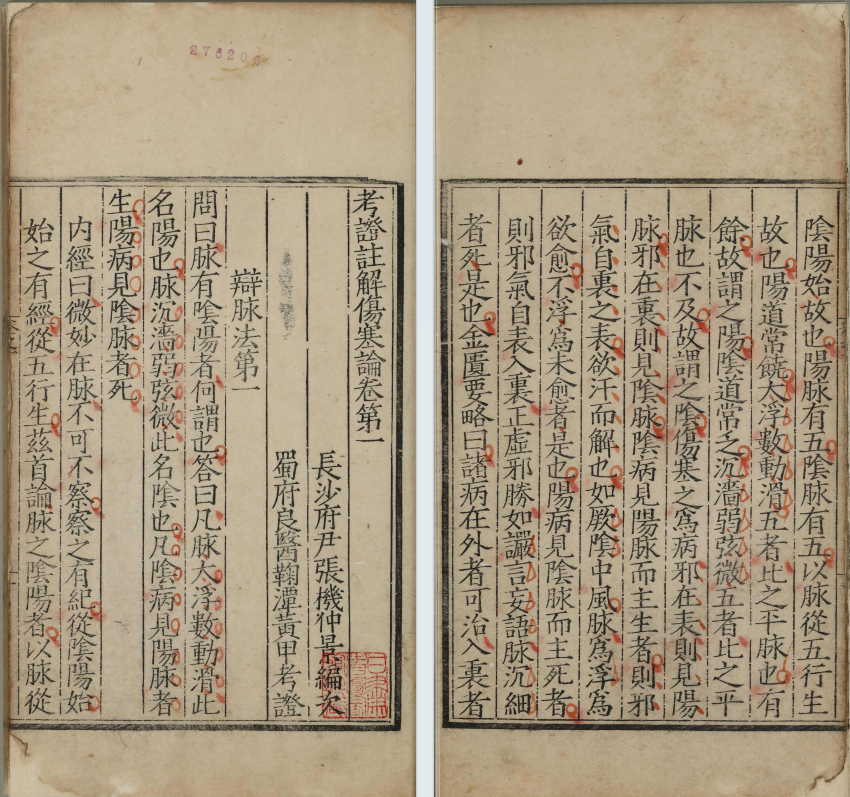 考證註解傷寒論卷第一
長沙府尹張機仲景編次
蜀府良醫鞠潭黃甲考證
辯脉法第一
問曰脉有陰陽者何謂也答曰凡脉大浮數動滑此
名陽也脉沉濇弱弦微此名陰也凡陰病見陽脉者
生陽病見陰脉者死
內經曰微妙在脉不可不察察之有紀從陰陽始
始之有經從五行生茲首論脉之陰陽者以脉從
陰陽始故也陽脉有五陰脉有五以脉從五行生
故也陽道常饒大浮數動滑五者比之平脉也有
餘故謂之陽陰道常乏沉濇弱弦微五者比之平
脉也不及故謂之陰傷寒之為病邪在表則見陽
脉邪在裏則見陰脉陰病見陽脉而主生者則邪
氣自裏之表欲汗而解也如厥陰中風脉為浮為
欲愈不浮為未愈者是也陽病見陰脉而主死者
則邪氣自表入裏正虛邪勝如讝言妄語脉沉細
者死是也金匱要略曰諸病在外者可治入裏者